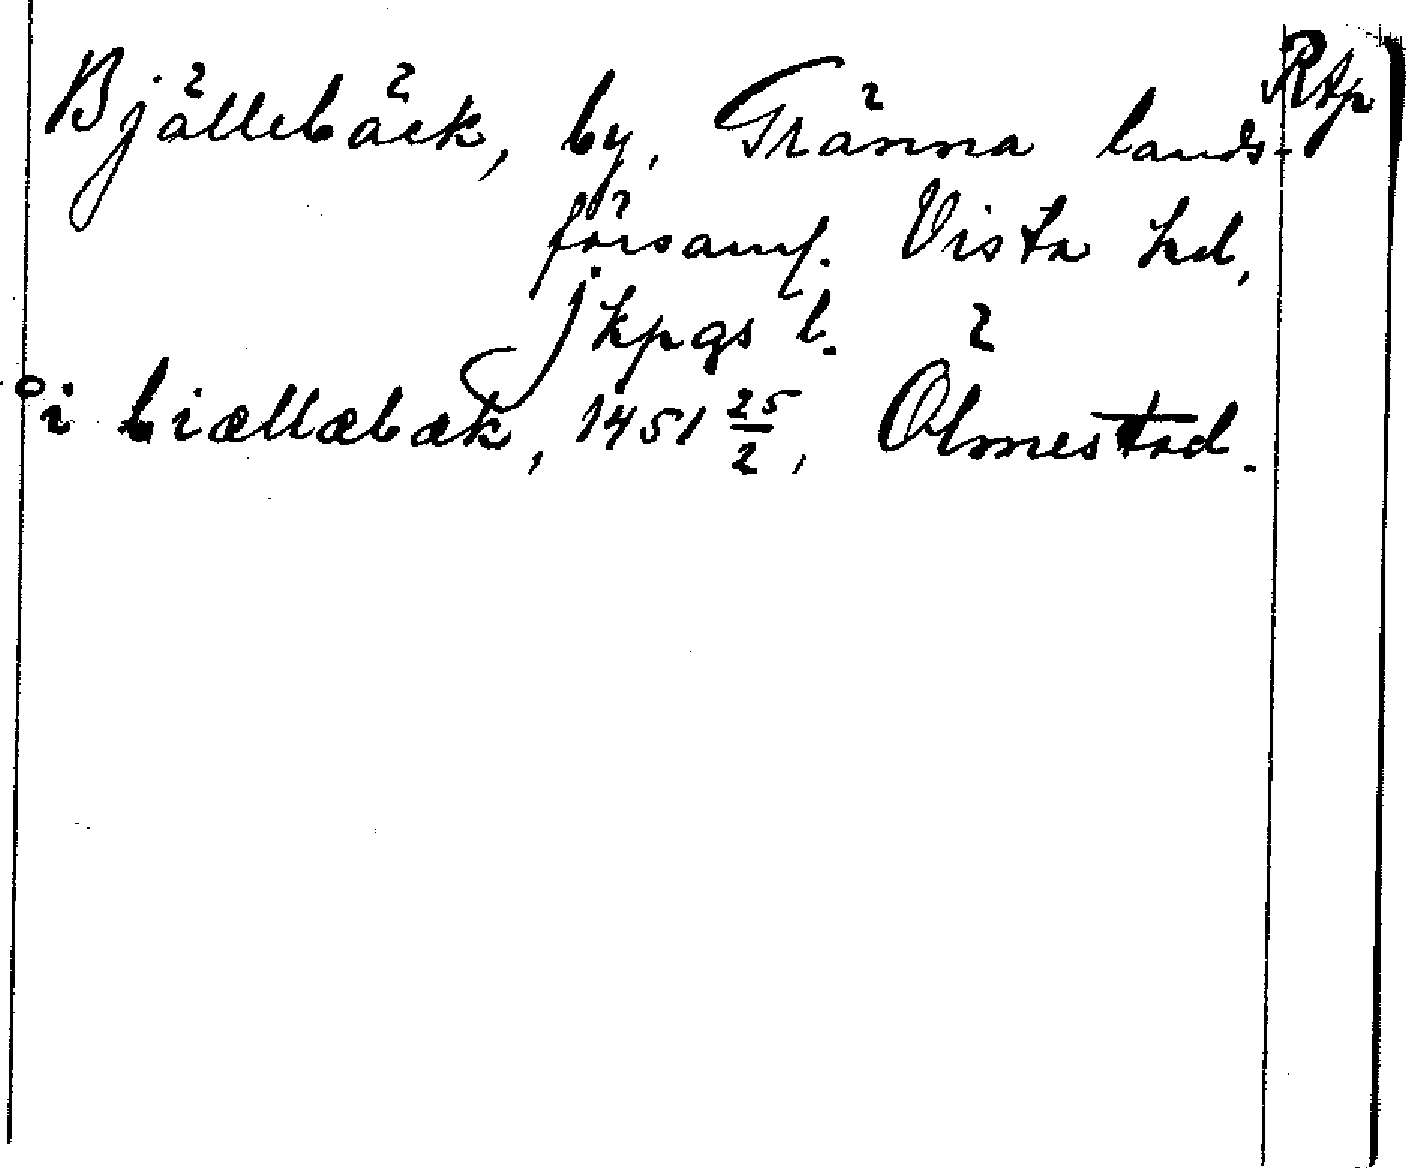 Bjällebäck, by, Gränna lands- Rtp
församl. Vista hd,
Jkpgs l.
i biællæbæk, 1451 25/2, Ölmestad.